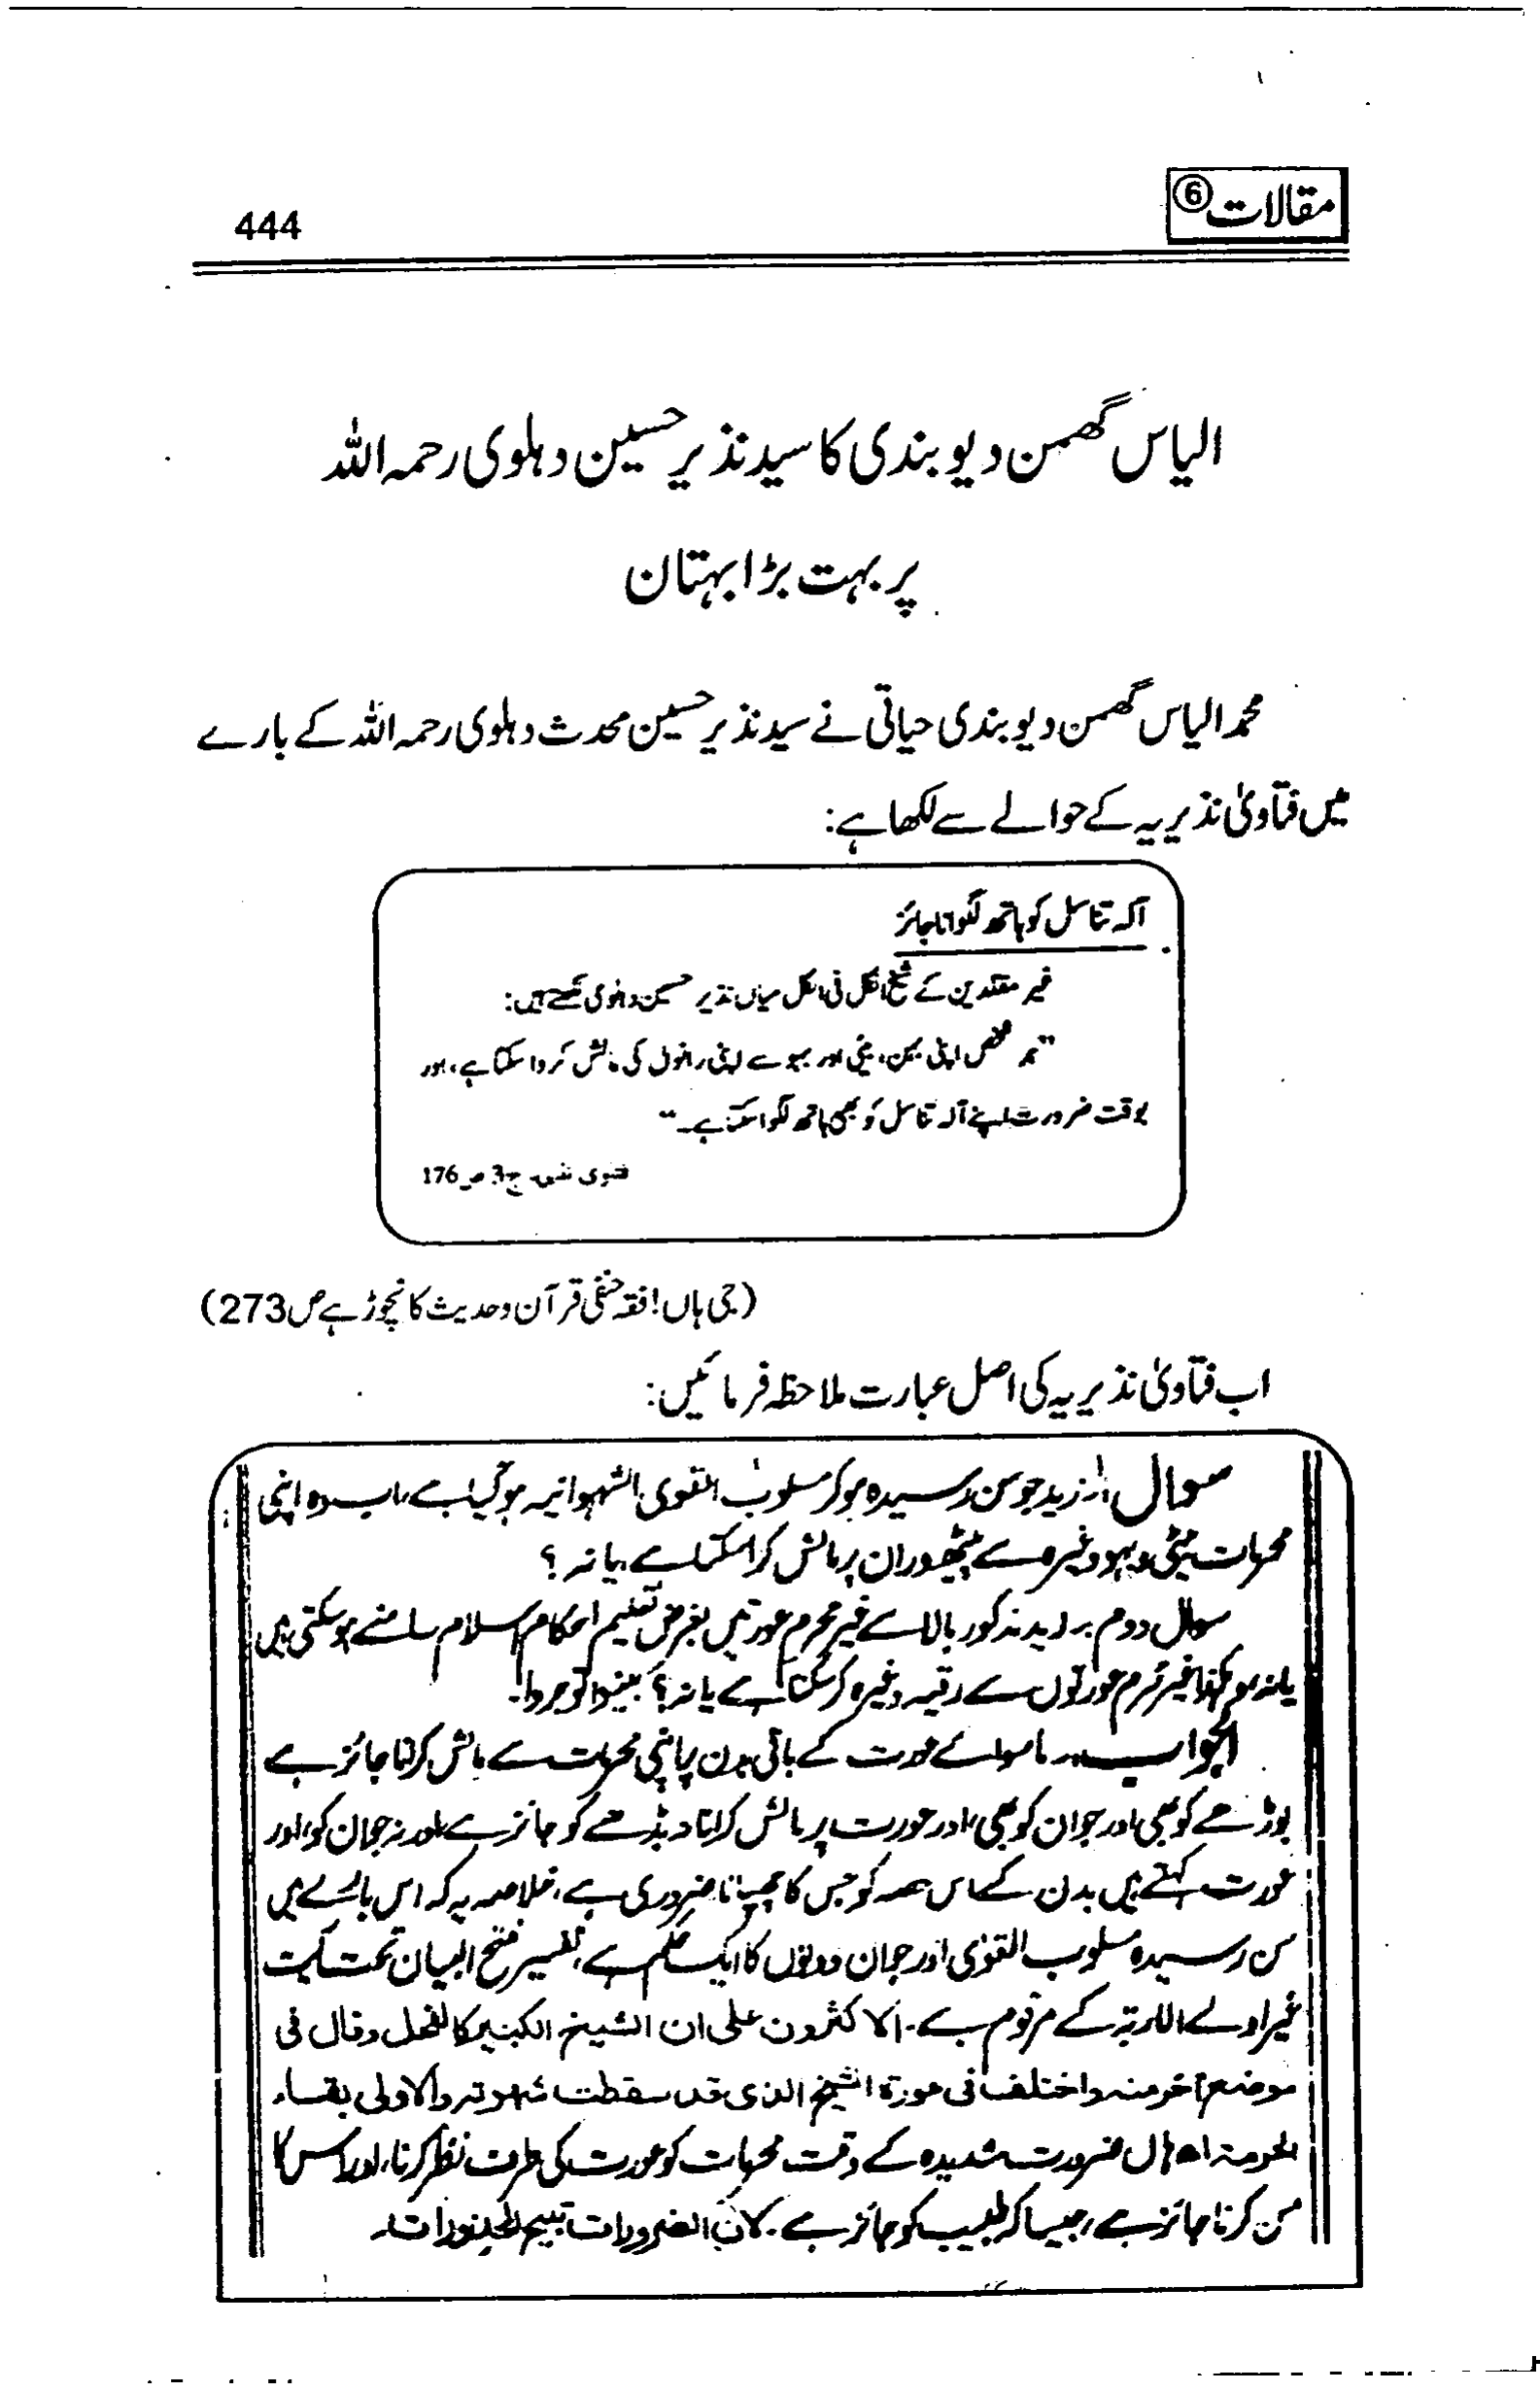 مقالات ⑥
444
الیاس گھمن دیوبندی کا سید نذیر حسین دہلوی رحمہ اللہ
پر بہت بڑا بہتان
محمد الیاس گھمن دیوبندی حیاتی نے سید نذیر حسین محدث دہلوی رحمہ اللہ کے بارے
میں فتاویٰ نذیریہ کے حوالے سے لکھا ہے:
آلہ تناسل کو ہاتھ لگوانا جائز
غیر مقلدین کے شیخ الکل فی الکل میاں نذیر حسین دہلوی لکھتے ہیں:
"ہر شخص اپنی بہن، بیٹی اور بہو سے اپنی رانوں کی مالش کروا سکتا ہے، اور
بوقت ضرورت اپنے آلہ تناسل کو بھی ہاتھ لگوا سکتا ہے۔"
ج3 ص176
(جی ہاں! فقہ حنفی قرآن وحدیث کا نچوڑ ہے ص273)
اب فتاویٰ نذیریہ کی اصل عبارت ملاحظہ فرمائیں:
سوال زید جو سن رسیدہ ہو کر مسلوب القوی الشہوانیہ ہو گیا ہے، اب وہ اپنی
محرمات بیٹی و بہو وغیرہ سے پیٹھ و ران پر مالش کرا سکتا ہے یا نہ؟
سوال دوم زید مذکور بالا سے غیر محرم عورتیں بغرض تعلیم احکام اسلام سامنے ہو سکتی ہیں
یا نہ، غیر محرم عورتوں سے رقیہ وغیرہ کر سکتا ہے یا نہ؟ بینوا توجروا۔
الجواب۔ ماسوائے عورت کے باقی بدن پر اپنی محرمات سے مالش کرانا جائز ہے
بوڑھے کو بھی اور جوان کو بھی، اور عورت پر مالش کرانا نہ بڈھے کو جائز ہے اور نہ جوان کو، اور
عورت کہتے ہیں بدن کے اس حصہ کو جس کا چھپانا ضروری ہے، خلاصہ یہ کہ اس بارے میں
سن رسیدہ مسلوب القوٰی اور جوان دونوں کا ایک حکم ہے، تفسیر فتح البیان تحت آیت
غیر اولے الاربۃ کے مرقوم ہے۔ الاکثرون علی ان الشیخ الکبیر کالفحل وقال فی
موضع آخر منہ واختلف فی عورۃ الشیخ الذی قد سقطت شہوتہ والاولی بقاء
الحرمۃ اھ ہاں ضرورت شدیدہ کے وقت محرمات کو عورت کی طرف نظر کرنا، اور اس کا
مس کرنا جائز ہے، جیسا کہ طبیب کو جائز ہے۔ لان الضرورات تبیح المحذورات۔